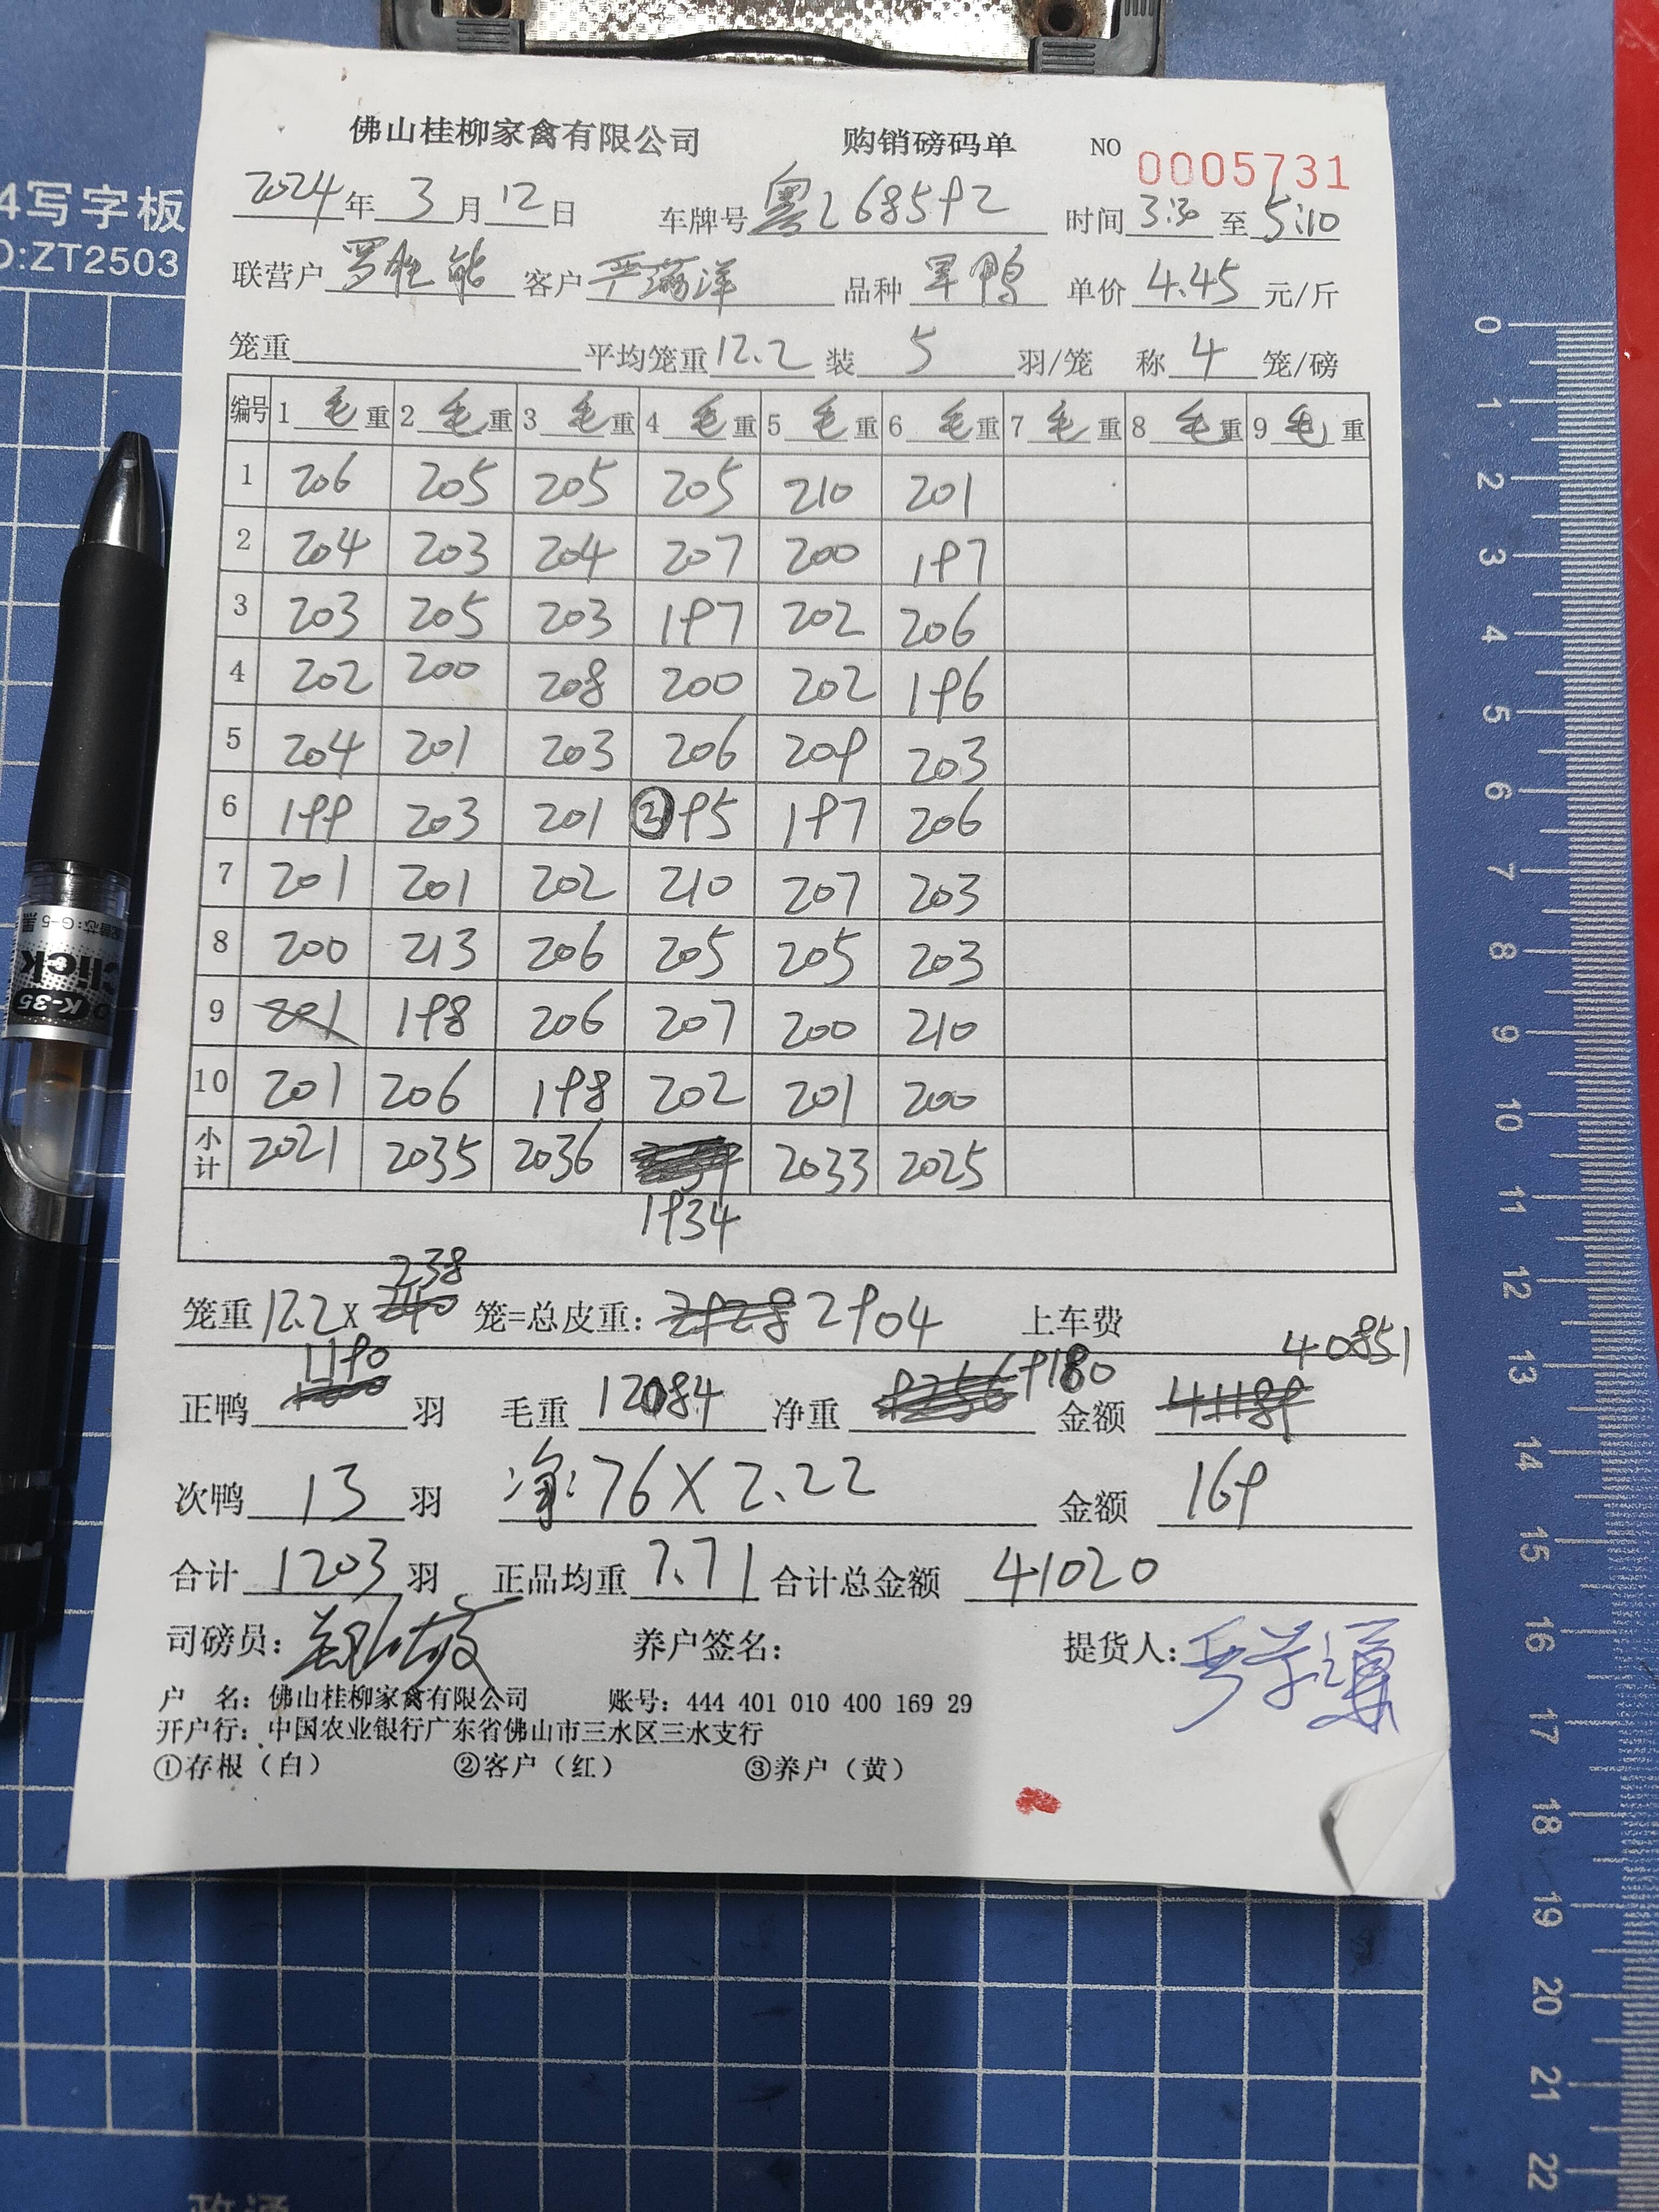 佛山桂柳家禽有限公司 购销磅码单 NO 0005731
2024年3月12日 车牌号粤L68592 时间3:30至5:10
联营户罗胜能 客户严 洋 品种旱鸭 单价4.45元/斤
笼重 平均笼重12.2装5羽/笼 称4笼/磅
编号 1毛重 2毛重 3毛重 4毛重 5毛重 6毛重 7毛重 8毛重 9毛重
1 206 205 205 205 210 201
2 204 203 204 207 200 197
3 203 205 203 197 202 206
4 202 200 208 200 202 196
5 204 201 203 206 209 203
6 199 203 201 ②95 197 206
7 201 201 202 210 207 203
8 200 213 206 205 205 203
9 201 198 206 207 200 210
10 201 206 198 202 201 200
小计 2021 2035 2036 2033 2025
1934
238
笼重12.2X240笼=总皮重:2928 2904 上车费
1190 40851
正鸭1200羽 毛重12084 净重9256 9180 金额41189
次鸭13羽 净:76X2.22 金额169
合计1203羽 正品均重7.71 合计总金额41020
司磅员: 养户签名: 提货人:
户 名:佛山桂柳家禽有限公司 账号:444 401 010 400 169 29
开户行:中国农业银行广东省佛山市三水区三水支行
①存根(白) ②客户(红) ③养户(黄)
4写字板
O:ZT2503
K-35
click
替芯:G-5 黑
0
1
2
3
4
5
6
7
8
9
10
11
12
13
14
15
16
17
18
19
20
21
22